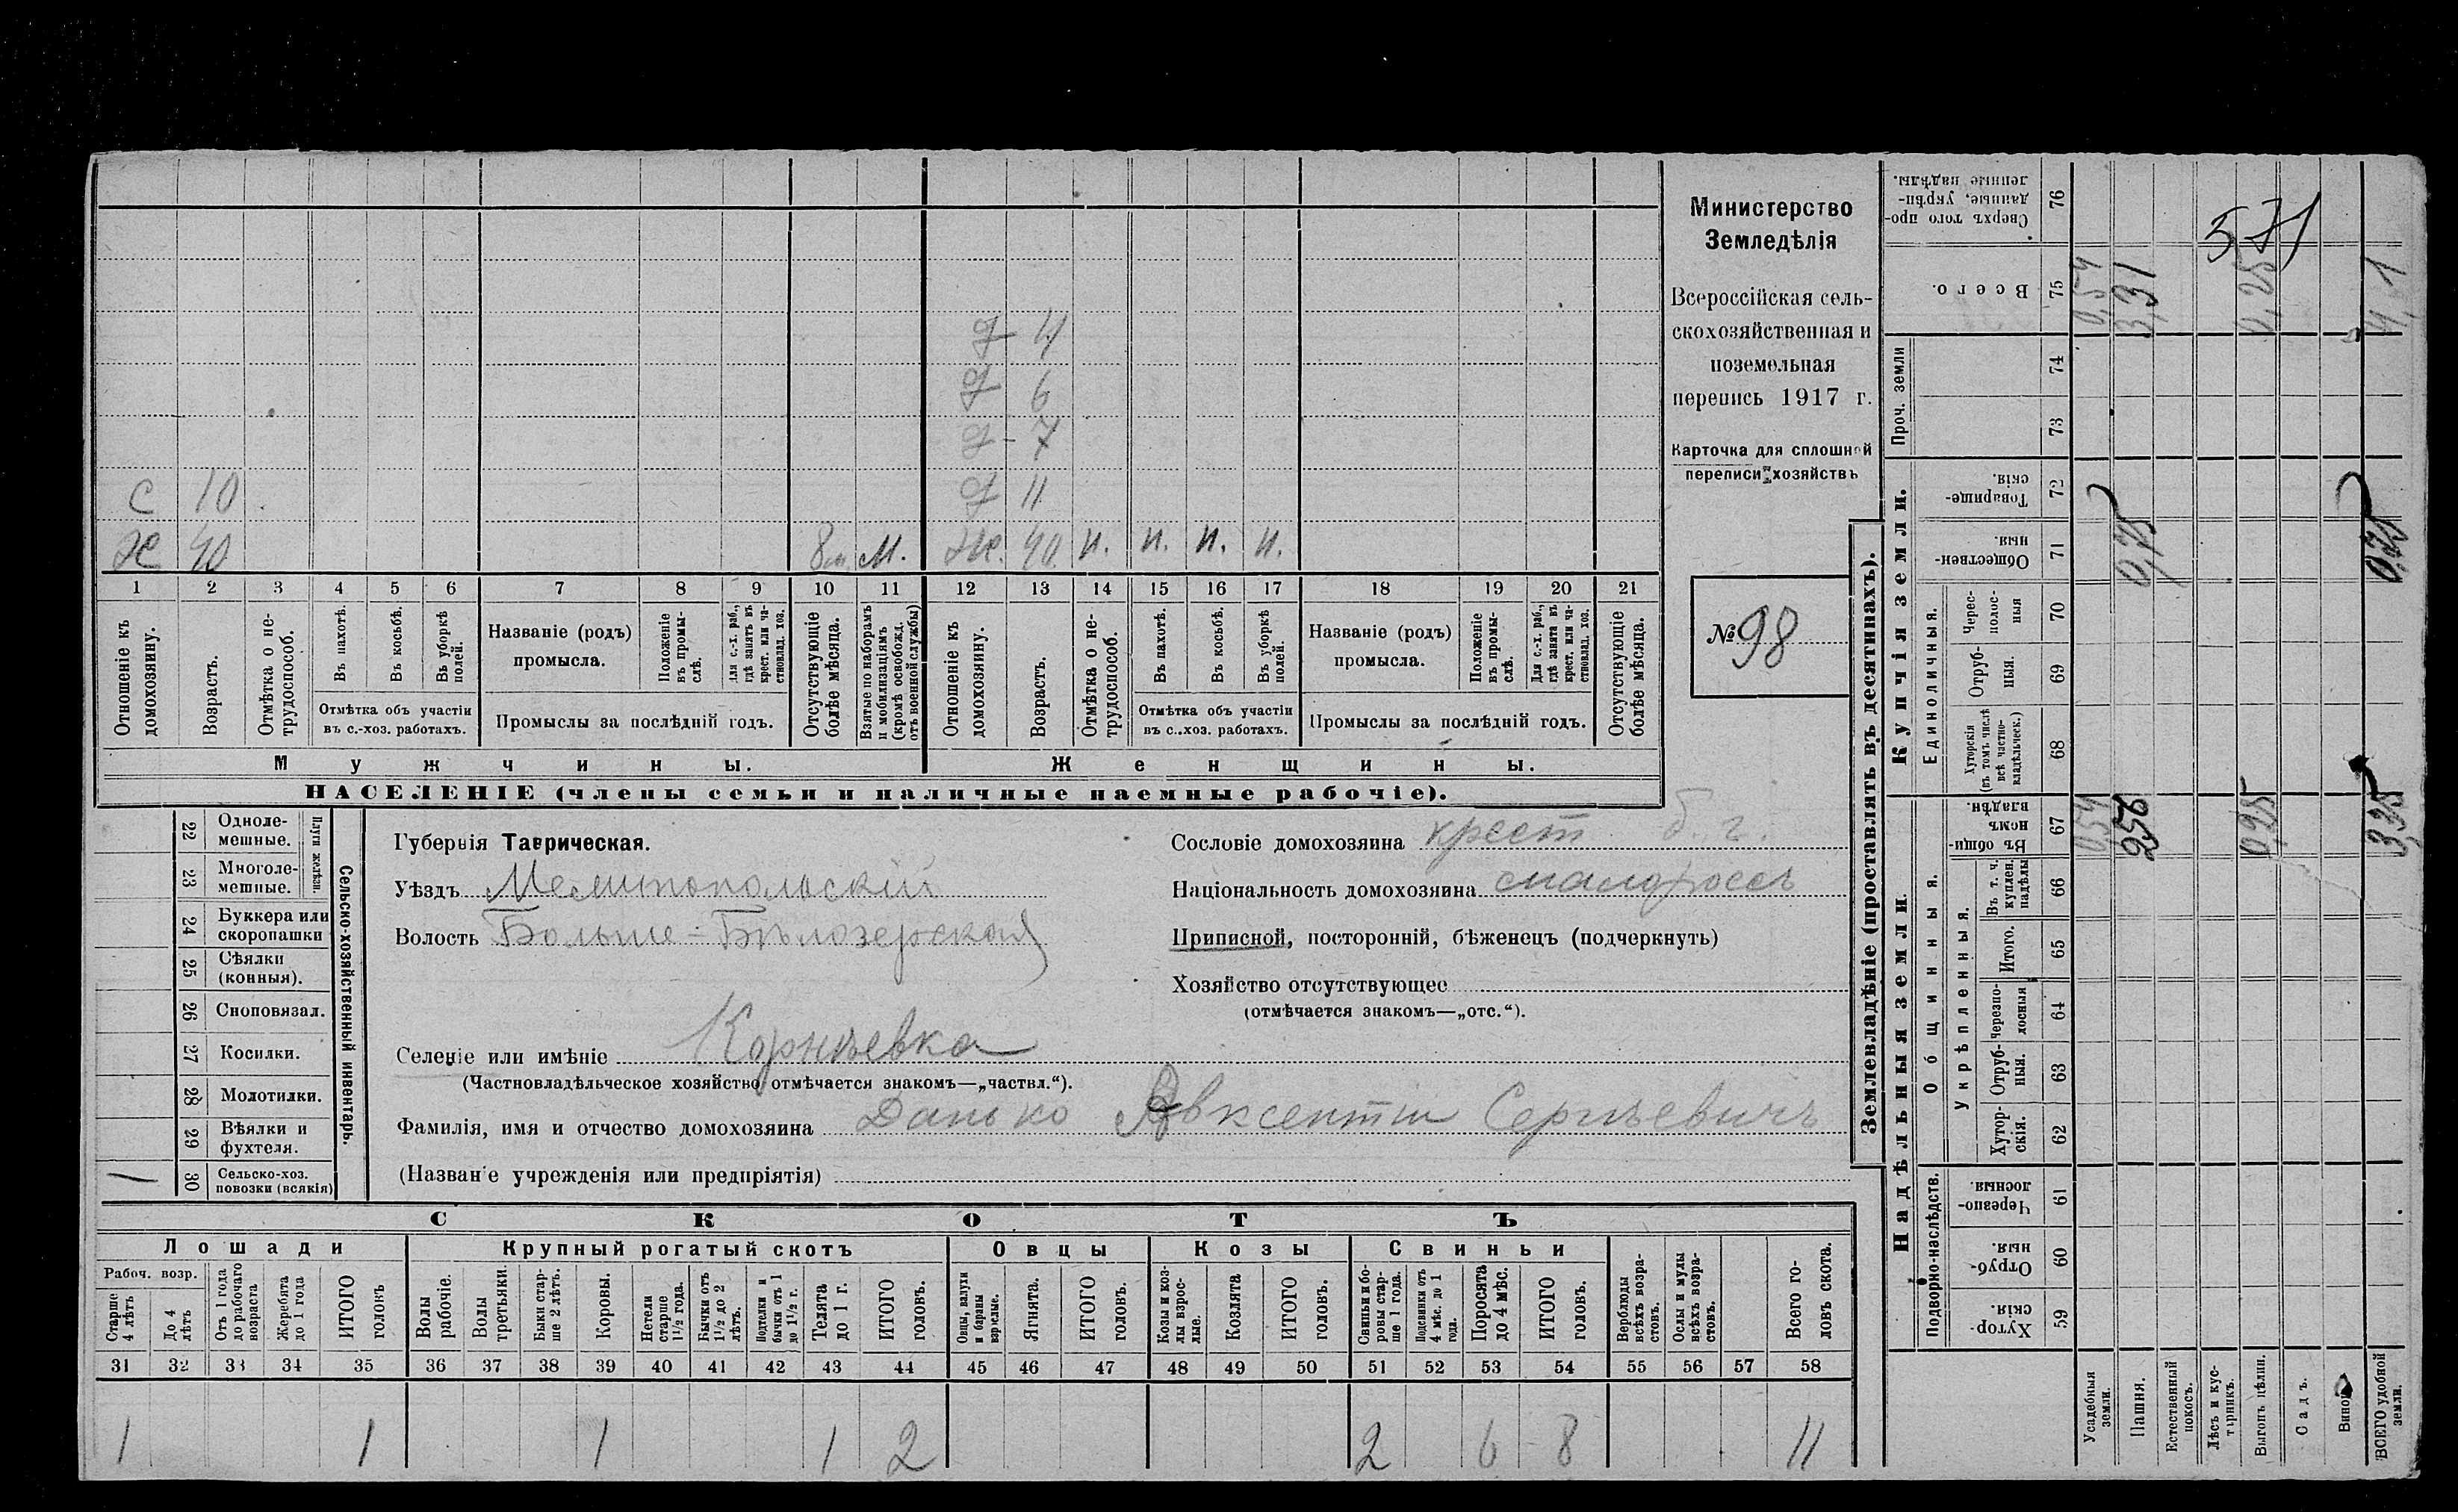 Министерство
Земледѣлія
Всероссійская сель-
скохозяйственная и
поземельная
перепись 1917 г.
Карточка для сплошной
переписи хозяйствъ
№ 98
д 4
д 6
д - 7
с 10 д 11
Х 40 8 м. М. Ж. 40 п. п. п. п.
1 2 3 4 5 6 7 8 9 10 11 12 13 14 15 16 17 18 19 20 21
Отношеніе къ домохозяину.
Возрастъ.
Отмѣтка о не-трудоспособ.
Въ пахотѣ.
Въ косьбѣ.
Въ уборкѣ полей.
Отмѣтка объ участіи
въ с.-хоз. работахъ.
Названіе (родъ)
промысла.
Положеніе въ промы-слѣ.
Для с.-х. раб., гдѣ занятъ въ крест. или ча-стновлад. хоз.
Промыслы за послѣдній годъ.
Отсутствующіе болѣе мѣсяца.
Взятые по наборамъ и мобилизаціямъ (кромѣ освобожд. отъ военной службы)
Отношеніе къ домохозяину.
Возрастъ.
Отмѣтка о не-трудоспособ.
Въ пахотѣ.
Въ косьбѣ.
Въ уборкѣ полей.
Отмѣтка объ участіи
въ с.-хоз. работахъ.
Названіе (родъ)
промысла.
Положеніе въ промы-слѣ.
Для с.-х. раб., гдѣ занята въ крест. или ча-стновлад. хоз.
Промыслы за послѣдній годъ.
Отсутствующіе болѣе мѣсяца.
Мужчины. Женщины.
НАСЕЛЕНІЕ (члены семьи и наличные наемные рабочіе).
Сельско-хозяйственный инвентарь.
Плуги желѣзн.
22 Одноле-мешные.
23 Многоле-мешные.
24 Буккера или скоропашки
25 Сѣялки (конныя).
26 Сноповязал.
27 Косилки.
28 Молотилки.
29 Вѣялки и фухтеля.
30 Сельско-хоз. повозки (всякія) /
Губернія Таврическая.
Уѣздъ Мелитопольскій
Волость Больше-Бѣлозерская
Селеніе или имѣніе Корнѣевка
(Частновладѣльческое хозяйство отмѣчается знакомъ—„частвл.“).
Фамилія, имя и отчество домохозяина Данько Авксентий Сергѣевичъ
(Названіе учрежденія или предпріятія)
Сословіе домохозяина крест б. г.
Національность домохозяина малороссъ
Приписной, посторонній, бѣженецъ (подчеркнуть)
Хозяйство отсутствующее
(отмѣчается знакомъ—„отс.“).
СКОТЪ
Лошади Крупный рогатый скотъ Овцы Козы Свиньи
Рабоч. возр.
Старше 4 лѣтъ
До 4 лѣтъ
Отъ 1 года до рабочаго возраста
Жеребята до 1 года
ИТОГО головъ
Волы рабочіе.
Волы третьяки.
Быки стар-ше 2 лѣтъ.
Коровы.
Нетели старше 1½ года.
Бычки отъ 1½ до 2 лѣтъ.
Подтелки и бычки отъ 1 до 1½ г.
Телята до 1 г.
ИТОГО головъ.
Овцы, валухи и бараны взрослые.
Ягнята.
ИТОГО головъ.
Козы и коз-лы взрос-лые.
Козлята
ИТОГО головъ.
Свиньи и бо-ровы стар-ше 1 года.
Подсвинки отъ 4 мѣс. до 1 года.
Поросята до 4 мѣс.
ИТОГО головъ.
Верблюды всѣхъ возра-стовъ.
Ослы и мулы всѣхъ возра-стовъ.
Всего го-ловъ скота.
31 32 33 34 35 36 37 38 39 40 41 42 43 44 45 46 47 48 49 50 51 52 53 54 55 56 57 58
1 1 1 1 2 2 6 8 11
Землевладѣніе (проставлять въ десятинахъ).
Надѣльныя земли. Купчія земли. Проч. земли
Подворно-наслѣдств.
Общинныя.
Укрѣпленныя.
Единоличныя.
59 Хутор-скія.
60 Отруб-ныя.
61 Черезпо-лосныя.
62 Хутор-скія.
63 Отруб-ныя.
64 Черезпо-лосныя
65 Итого.
66 Въ т. ч. куплен. надѣлы
67 Въ общи-номъ владѣн.
68 Хуторскія (въ томъ числѣ всѣ частно-владѣльческ.)
69 Отруб-ныя.
70 Черес-полос-ныя
71 Обществен-ныя.
72 Товарище-скія.
73
74
75 Всего.
76 Сверхъ того про-данные, укрѣп-ленные надѣлы.
Усадебныя земли. 0,54 0,54
Пашня. 256 0,75 3,31
Естественный покосъ.
Лѣсъ и кус-тарникъ.
Выгонъ цѣлин. 0,25 0,25
Садъ.
ВСЕГО удобной земли. 3,35 0,75 4,1
571